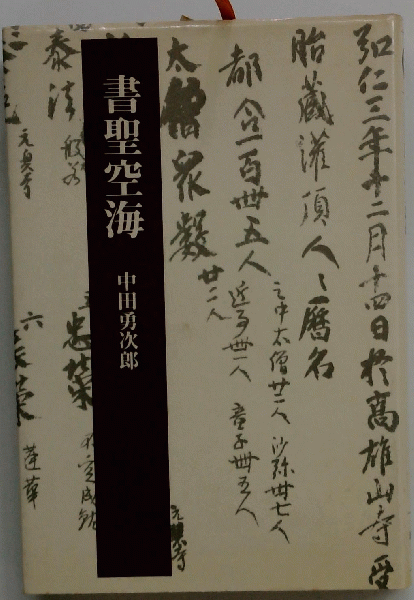 書聖空海
中田勇次郎
弘仁三年十二月十四日於高雄山寺受
胎藏灌頂人々曆名
都合一百卌五人
之中太僧廿二人 沙弥卌七人
近事卌一人 童子卌五人
太僧衆數廿二人
元興寺
泰法
元興寺
忠榮
六
蓮華